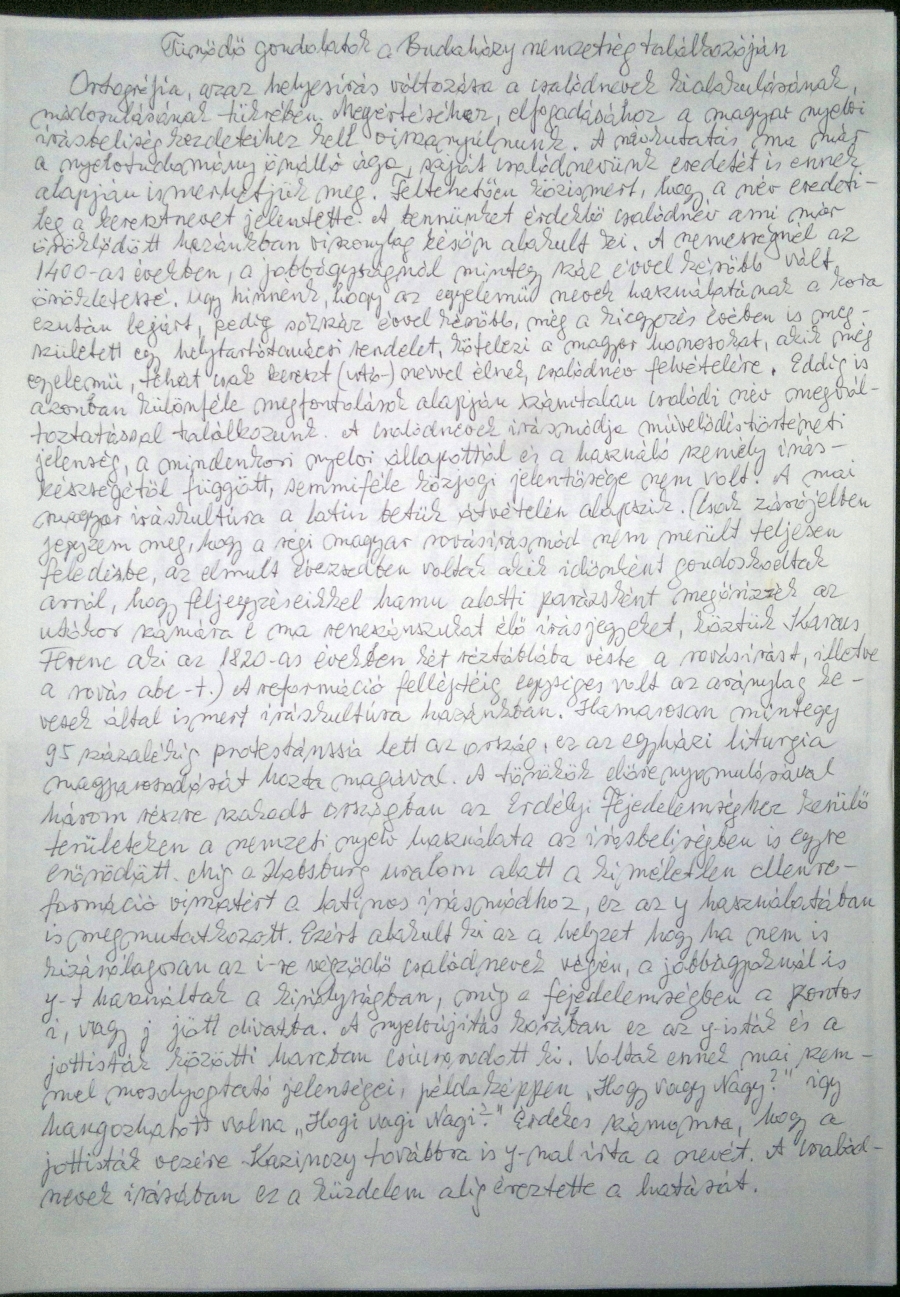 Tűnődő gondolatok a Budaházy nemzetség találkozóján
Ortográfia, azaz helyesírás változása a családnevek kialakulásának,
módosulásának tükrében. Megértéséhez, elfogadásához a magyar nyelvi
írásbeliség kezdeteihez kell visszanyúlnunk. A névkutatás ma már
a nyelvtudomány önálló ága, saját családnevünk eredetét is ennek
alapján ismerhetjük meg. Feltehetően közismert, hogy a név eredeti-
leg a keresztnevet jelentette. A bennünket érdeklő családnév ami már
öröklődött hazánkban viszonylag későn alakult ki. A nemességnél az
1400-as években, a jobbágyságnál mintegy száz évvel később vált
örökletessé. Úgy hinnénk, hogy az egyelemű nevek használatának a kora
ezután lejárt, pedig sokszáz évvel később, még a kiegyezés évében is meg-
született egy helytartótanácsi rendelet, kötelezi a magyar honosokat, akik még
egyelemű, tehát csak kereszt (utó-) névvel élnek, családnév felvételére. Eddig is
azonban különféle megfontolások alapján számtalan családi név megvál-
toztatással találkozunk. A családnevek írásmódja művelődéstörténeti
jelenség, a mindenkori nyelvi állapottól és a használó személy írás-
készségétől függött, semmiféle közjogi jelentősége nem volt. A mai
magyar íráskultúra a latin betűk átvételén alapszik. (Csak zárójelben
jegyzem meg, hogy a régi magyar rovásírásmód nem merült teljesen
feledésbe, az elmúlt évezredben voltak akik időnként gondoskodtak
arról, hogy feljegyzéseikkel hamu alatti parázsként megőrizzék az
utókor számára e ma reneszánszukat élő írásjegyeket, köztük Karacs
Ferenc aki az 1820-as években két réztáblába véste a rovásírást, illetve
a rovás abc-t.) A reformáció felléptéig egységes volt az aránylag ke-
vesek által ismert íráskultúra hazánkban. Hamarosan mintegy
95 százalékig protestánssá lett az ország, ez az egyházi liturgia
magyarosodását hozta magával. A törökök előrenyomulásával
három részre szakadt országban az Erdélyi Fejedelemséghez kerülő
területeken a nemzeti nyelv használata az írásbeliségben is egyre
erősödött. Míg a Habsburg uralom alatt a kíméletlen ellenre-
formáció visszatért a latinos írásmódhoz, ez az y használatában
is megmutatkozott. Ezért alakult ki az a helyzet hogy ha nem is
kizárólagosan az i-re végződő családnevek végén, a jobbágyoknál is
y-t használtak a királyságban, míg a fejedelemségben a pontos
i, vagy j jött divatba. A nyelvújítás korában ez az y-isták és a
jottisták közötti harcban csúcsosodott ki. Voltak ennek mai szem-
mel mosolyogtató jelenségei, példaképpen „Hogy vagy Nagy?" így
hangozhatott volna „Hogi vagi Nagi?" Érdekes számomra, hogy a
jottisták vezére Kazinczy továbbra is y-nal írta a nevét. A család-
nevek írásában ez a küzdelem alig éreztette a hatását.